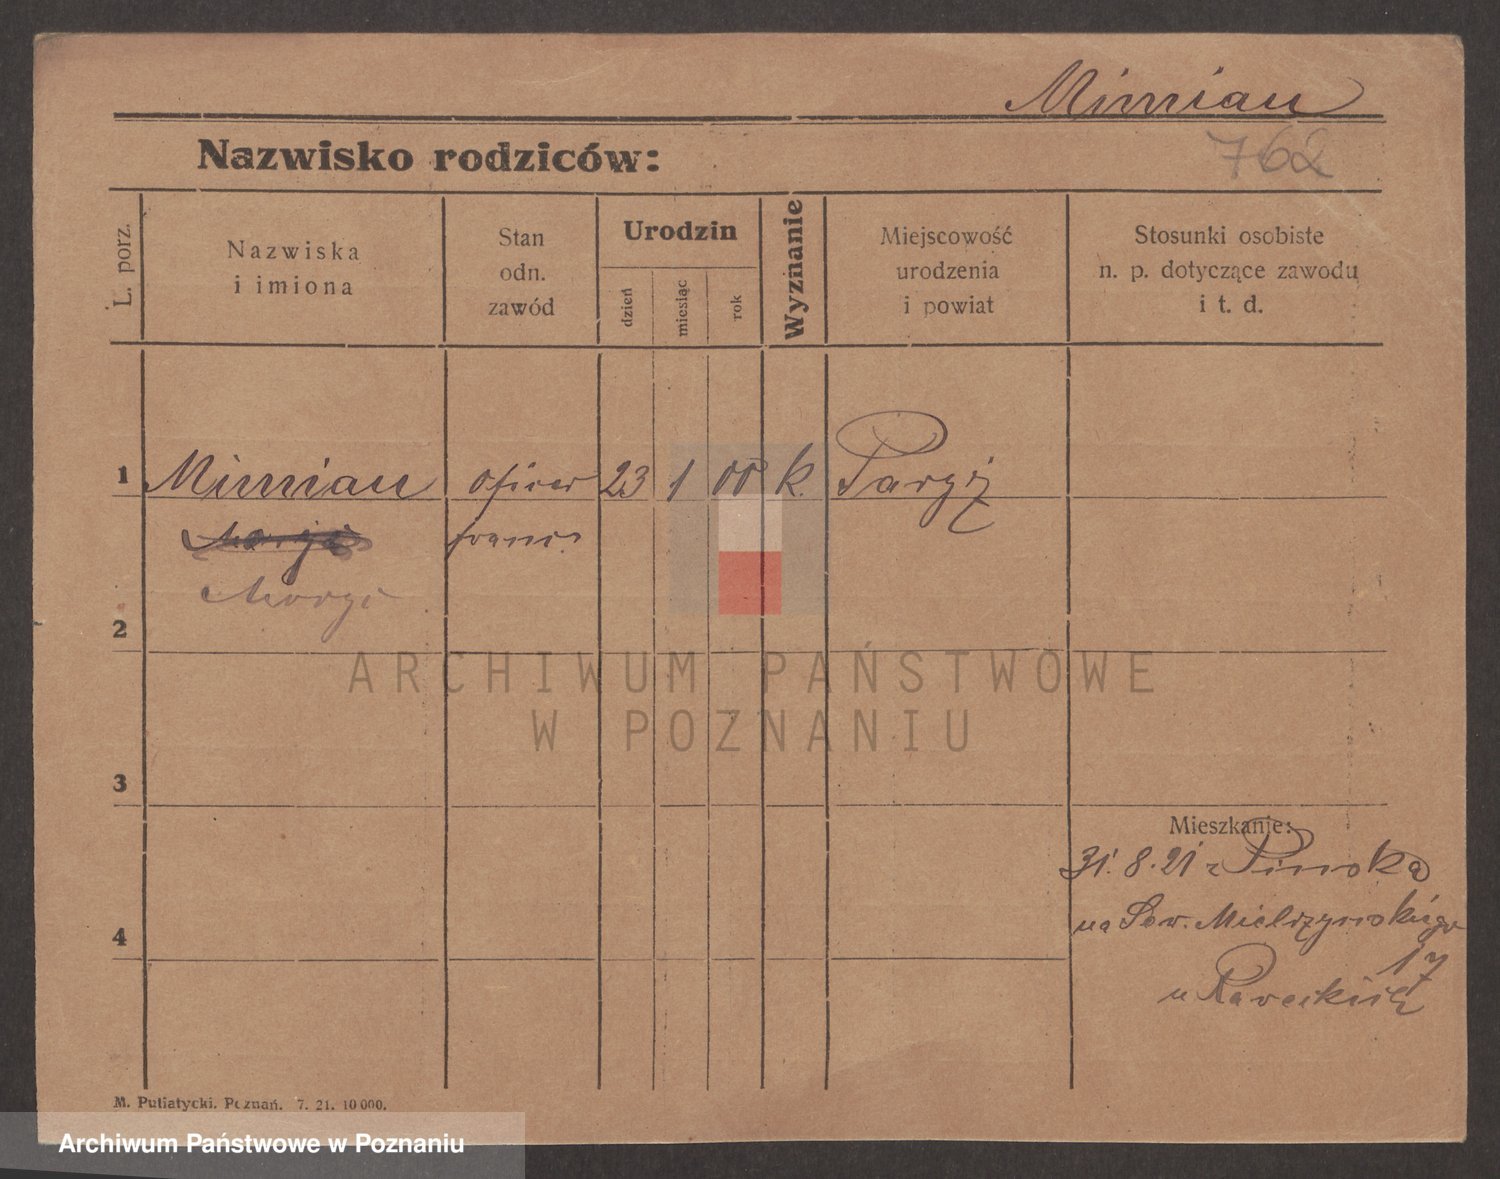 Mimiau
762
Nazwisko rodziców:
L. porz.
Nazwiska
i imiona
Stan
odn.
zawód
Urodzin
dzień
miesiąc
rok
Wyznanie
Miejscowość
urodzenia
i powiat
Stosunki osobiste
n. p. dotyczące zawodu
i t. d.
1 Mimiau oficer 23 1 00 k. Paryż
franc.
2
ARCHIWUM PAŃSTWOWE
W POZNANIU
3
Mieszkanie:
31. 8. 21 z Pinska
na Sew. Mielżynskiego
4
17
u
M. Putiatycki. Poznań. 7. 21. 10 000.
Archiwum Państwowe w Poznaniu